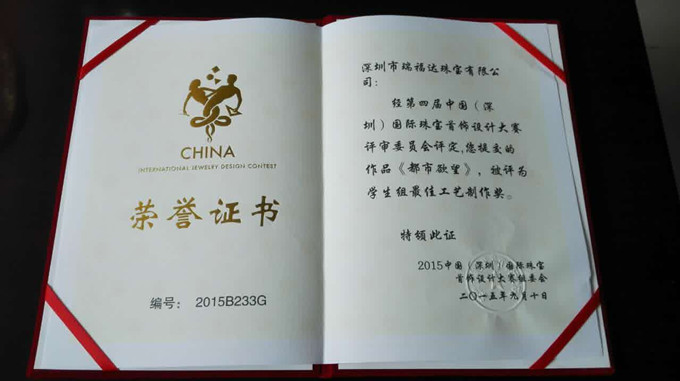 CHINA
INTERNATIONAL JEWELRY DESIGN CONTEST
荣誉证书
编号: 2015B233G
深圳市瑞福达珠宝有限公
司：
经第四届中国（深
圳）国际珠宝首饰设计大赛
评审委员会评定,您提交的
作品《都市欲望》，被评为
学生组最佳工艺制作奖。
特颁此证
2015中国（深圳）国际珠宝
首饰设计大赛组委会
二〇一五年九月十日